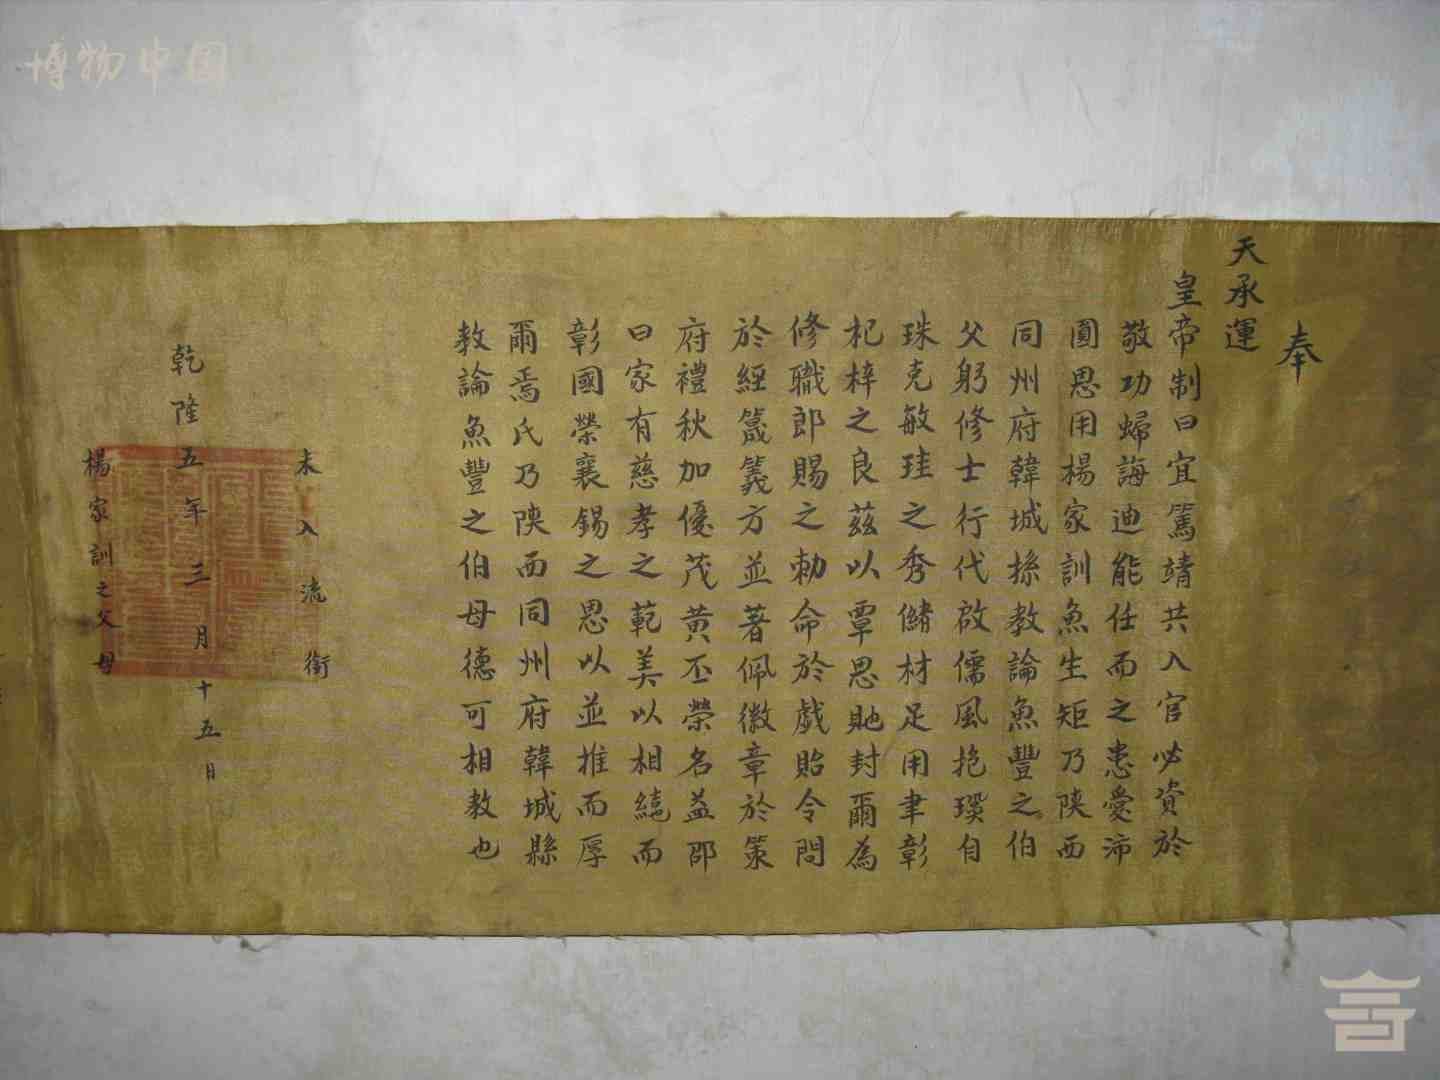 博物中国
奉
天承運
皇帝制曰宜篤靖共入官必資於
敬功婦誨迪能任而之患愛沛
圓恩用楊家訓魚生矩乃陝西
同州府韓城孫教論魚豐之伯
父躬修士行代啟儒風抱璞自
珠克敏珪之秀儲材足用聿彰
杞梓之良茲以覃恩貤封爾為
修職郎賜之勅命於戲貽令問
於經箴義方並著佩徽章於策
府禮秋加優茂黃丕榮名益邵
曰家有慈孝之範美以相繞而
彰國榮襄錫之恩以並推而厚
爾焉氏乃陝西同州府韓城縣
教論魚豐之伯母德可相教也
未入流銜
乾隆五年三月十五日
楊家訓之父母